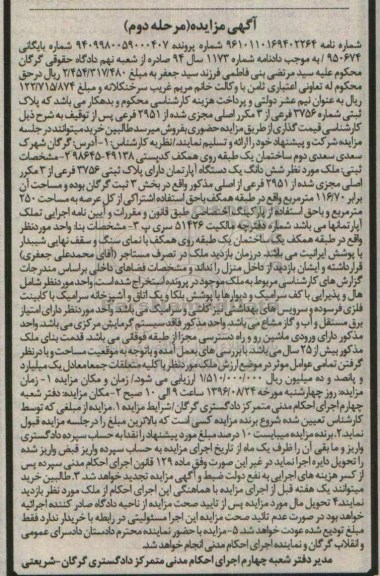 آگهی مزایده(مرحله دوم)
شماره نامه ۹۶۱۰۱۱۰۱۶۹۴۰۲۲۶۴ شماره پرونده ۹۴۰۹۹۸۰۰۵۹۰۰۰۴۰۷ شماره بایگانی
۹۵۰۶۷۴ / به موجب دادنامه شماره ۱۱۷۳ سال ۹۴ صادره از شعبه نهم دادگاه حقوقی گرگان
محکوم علیه سید مرتضی بنی فاطمی فرزند سید جعفر به مبلغ ۲/۴۵۴/۳۱۷/۴۸۰ ریال در حق
محکوم له تعاونی اعتباری ثامن با وکالت خانم مریم غریب سرخنکلاته و مبلغ ۱۲۲/۷۱۵/۸۷۴
ریال به عنوان نیم عشر دولتی و پرداخت هزینه کارشناسی محکوم و بدهکار می باشد که پلاک
ثبتی شماره ۳۷۵۶ فرعی از ۳ مکرر اصلی مجزی شده از ۲۹۵۱ فرعی پس از توقیف به شرح ذیل
کارشناسی قیمت گذاری از طریق مزایده حضوری بفروش میرسد طالبین خرید میتوانند در جلسه
مزایده شرکت و پیشنهاد خود را ارائه و تسلیم نمایند/نظریه کارشناس: ۱-آدرس: گرگان شهرک
سعدی سعدی دوم ساختمان یک طبقه روی همکف کدپستی ۴۹۱۳۸-۹۸۶۴۵ ۲-مشخصات
ثبتی: ملک مورد نظر شش دانگ یک دستگاه آپارتمان دارای پلاک ثبتی ۳۷۵۶ فرعی از ۳ مکرر
اصلی مجزی شده از ۲۹۵۱ فرعی از اصلی مذکور واقع در بخش ۳ ثبت گرگان بوده و مساحت آن
برابر ۱۱۶/۷۰ مترمربع واقع در طبقه همکف باحق استفاده اشتراکی از کل عرصه به مساحت ۲۵۰
مترمربع و باحق استفاده از پارکینگ اختصاصی طبق قانون و مقررات و آیین نامه اجرایی تملک
آپارتمانها می باشد شماره دفترچه مالکیت ۵۱۴۲۶ سری پ ۳- مشخصات بنا: واحد موردنظر
واقع در طبقه همکف یک ساختمان یک طبقه روی همکف با نمای سنگ و سقف نهایی شیبدار
با پوشش ایرانیت می باشد. درزمان بازدید ملک در تصرف مستاجر (آقای محمدعلی جعفری)
قرار داشته و ایشان بازدید از داخل منزل را نداند و مشخصات فضاهای داخلی براساس مندرجات
گزارش های کارشناسی مربوط به ملک موجود در پرونده استخراج شده است. واحد موردنظر شامل
هال و پذیرایی با کف سرامیک و دیوارها با پوشش بلکا و یک اتاق و آشپزخانه سرامیک با کابینت
فلزی فرسوده و سرویس های بهداشتی نیز کاشی و سرامیک می باشد. واحد موردنظر دارای امتیاز
برق مستقل و آب و گاز مشاع می باشد. واحد مذکور فاقد سیستم گرمایش مرکزی می باشد. واحد
مذکور دارای ورودی ماشین رو و راه دسترسی مجزا از طبقه فوقانی می باشد. قدمت بنای ملک
مذکور بیش از ۲۵ سال می باشد. با بررسی های بعمل آمده و باتوجه به موقعیت مساحت و با درنظر
گرفتن تمامی عوامل موثر در موضوع ارزش ملک موردنظر با کلیه متعلقات جمعا معادل یک میلیارد
و پانصد و ده میلیون ریال ۱/۵۱۰/۰۰۰/۰۰۰ ارزیابی می شود/ زمان و مکان مزایده ۱- زمان
مزایده: روز چهارشنبه مورخه ۱۳۹۶/۰۸/۲۴ ساعت ۹ الی ۱۰ صبح ۲- مکان مزایده: دفتر شعبه
چهارم اجرای احکام مدنی متمرکز دادگستری گرگان/شرایط مزایده ۱.مزایده از مبلغی که توسط
کارشناس تعیین شده شروع برنده مزایده کسی است که بالاترین مبلغ را در جلسه مزایده قبول
نماید۲.برنده مزایده میبایست ۱۰ درصد مبلغ مورد پیشنهاد را نقدا به حساب سپرده دادگستری
واریز و مابقی آن را ظرف یک ماه از تاریخ اجرای مزایده به حساب سپرده واریز قبض واریز شده
را تحویل دایره اجرا نماید در غیر این صورت وفق ماده ۱۲۹ قانون اجرای احکام مدنی سپرده پس
از کسر هزینه های اجرایی به نفع دولت ضبط و آگهی مزایده تجدید خواهد شد. ۳.طالبین خرید
میتوانند یک هفته قبل از اجرای مزایده با هماهنگی این اجرای احکام از ملک مورد نظر بازدید
نمایند۴ تحویل مال مورد مزایده پس از تایید صحت مزایده از ناحیه دادگاه صادر کننده اجرائیه
خواهد بود در صورت عدم تائید صحت مزایده این اجرا مسئولیتی در رابطه با خریدار ندارد فقط
مبلغ تودیع شده عودت خواهد شد. ۵-مزایده با حضور نماینده محترم دادستان دادسرای عمومی
و انقلاب گرگان و نماینده اجرای احکام مدنی انجام خواهد شد.
مدیر دفتر شعبه چهارم اجرای احکام مدنی متمرکز دادگستری گرگان -شریعتی